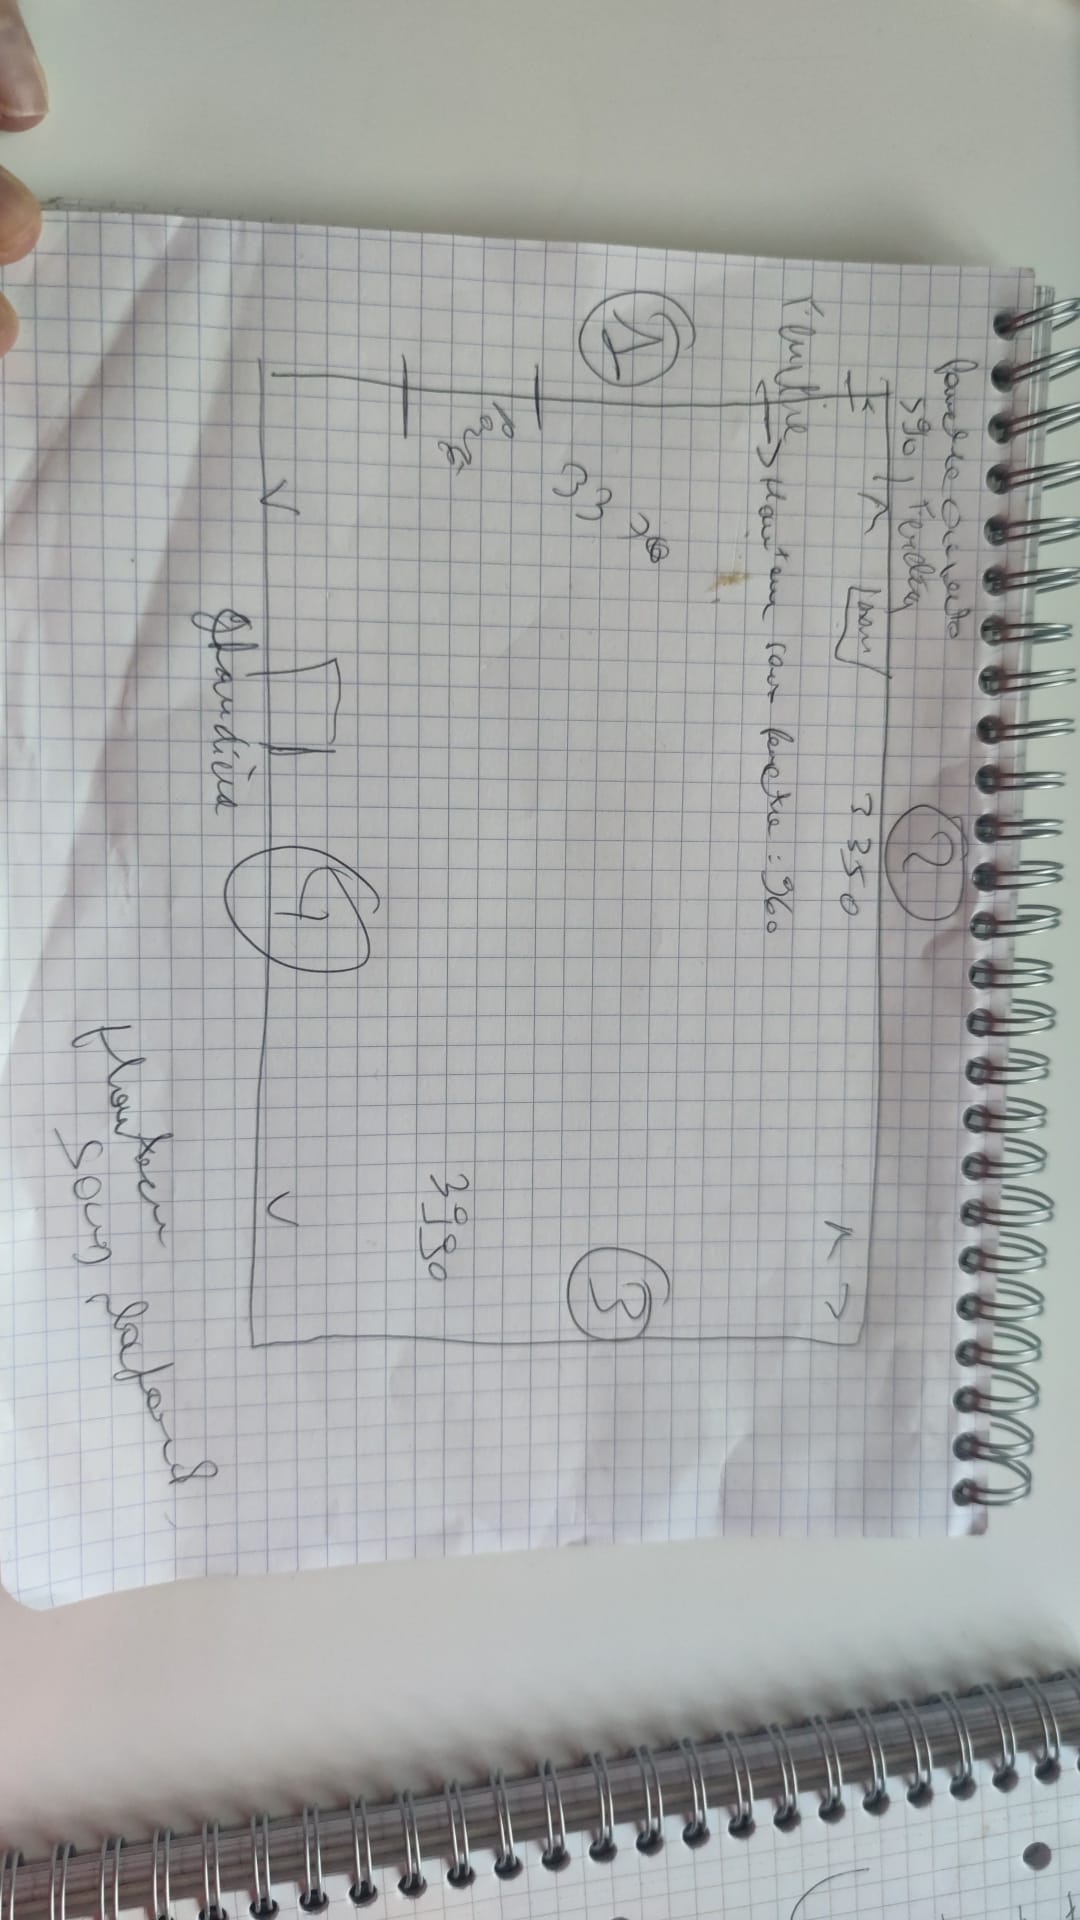 fenetre ouverte
590,
2
3350
Fenêtre
Hauteur sous fenetre : 960
1
33
3
Porte
3990
4
Chaudière
Hauteur
sous plafond